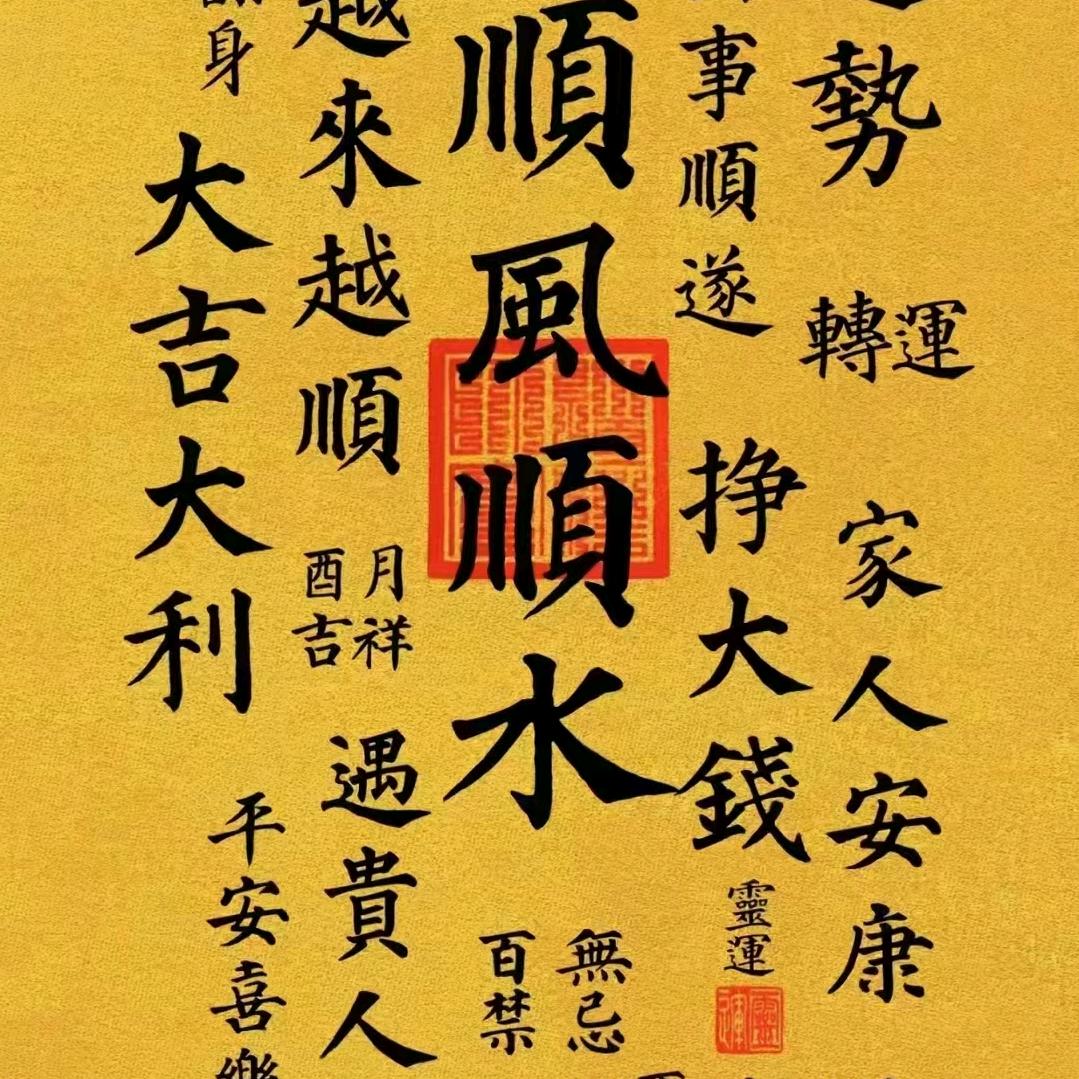 勢
轉運
家人安康
事順遂
挣大錢
靈運
順風順水
無忌
百禁
越來越順
月祥
酉吉
遇貴人
身
大吉大利
平安喜樂